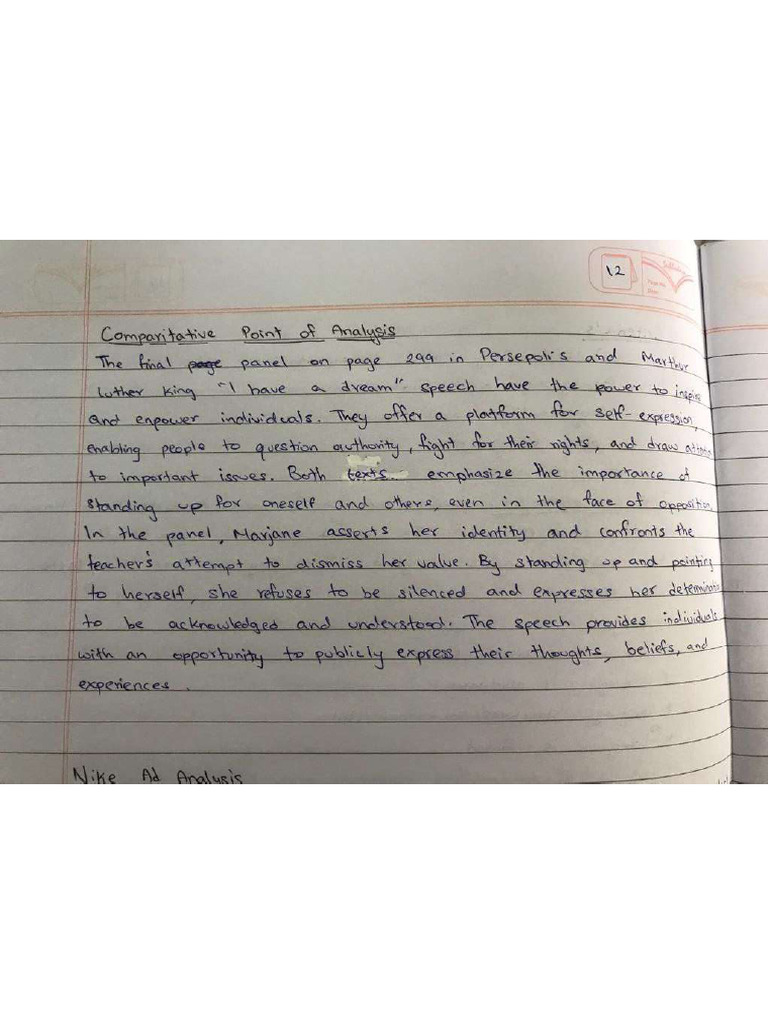 12
Comparitative Point of Analysis
The final page panel on page 299 in Persepolis and Marthur
Luther King "I have a dream" speech have the power to inspire
and enpower individuals. They offer a platform for self-expression,
enabling people to question authority, fight for their rights, and draw
to important issues. Both texts emphasize the importance of
standing up for oneself and others, even in the face of opposition.
In the panel, Marjane asserts her identity and confronts the
teacher's attempt to dismiss her value. By standing up and pointing
to herself, she refuses to be silenced and expresses her determination
to be acknowledged and understood. The speech provides individuals
with an opportunity to publicly express their thoughts, beliefs, and
experiences.
Nike Ad Analysis